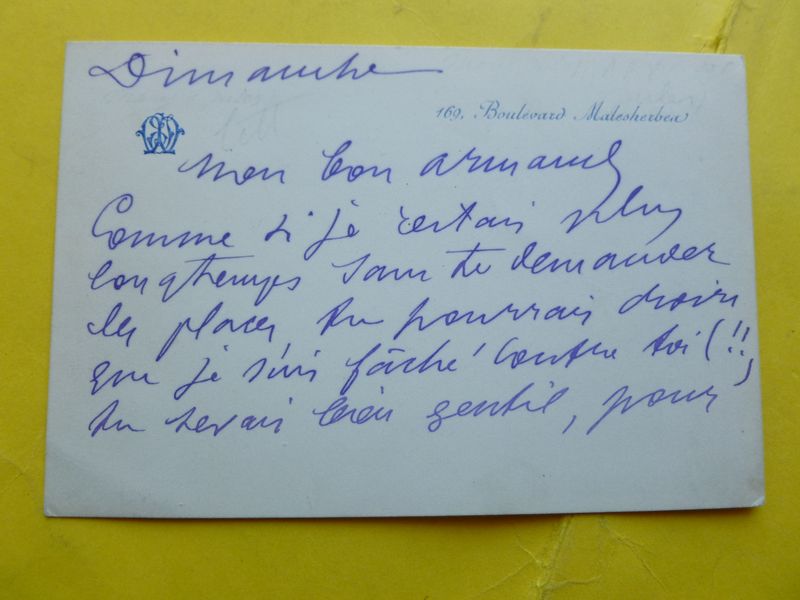 Dimanche
169, Boulevard Malesherbes
Mon bon Armand
Comme si je restais plus
longtemps sans te demander
des places, tu pourrais croire
que je suis fâché contre toi (!!)
tu serais bien gentil, pour